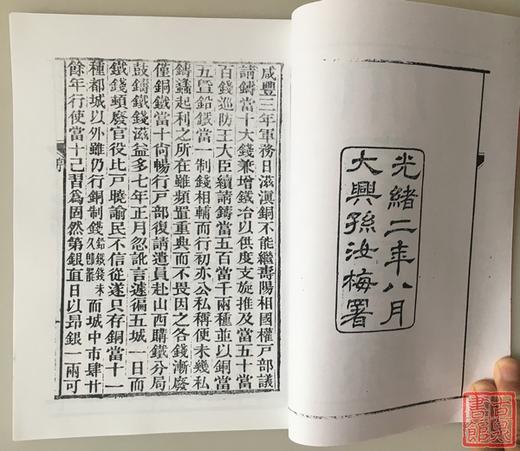 光緒二年八月
大興孫汝梅署
咸豐三年軍務日滋滇銅不能繼壽陽相國權戸部議
請鑄當十大錢兼增鐵冶以供度支旋推及當五十當
百錢巡防王大臣續請鑄當五百當千兩種並以銅當
五暨鉛鐵當一制錢相輔而行初亦公私稱便未幾私
鑄蠭起利之所在雖頻置重典而不畏因之各錢漸廢
僅銅鐵當十尚暢行戸部復請遣員赴山西購鐵分局
鼓鑄鐵錢滋益多七年正月忽訛言遽徧五城一日而
鐵錢頓廢官役比戸曉諭民不信從遂只存銅當十一
種都城以外雖仍行銅制錢鉛鐵錢未久卽罷而城中市肆廿
餘年行使當十己習爲固然第銀直日以昻銀一兩可
古泉
書館